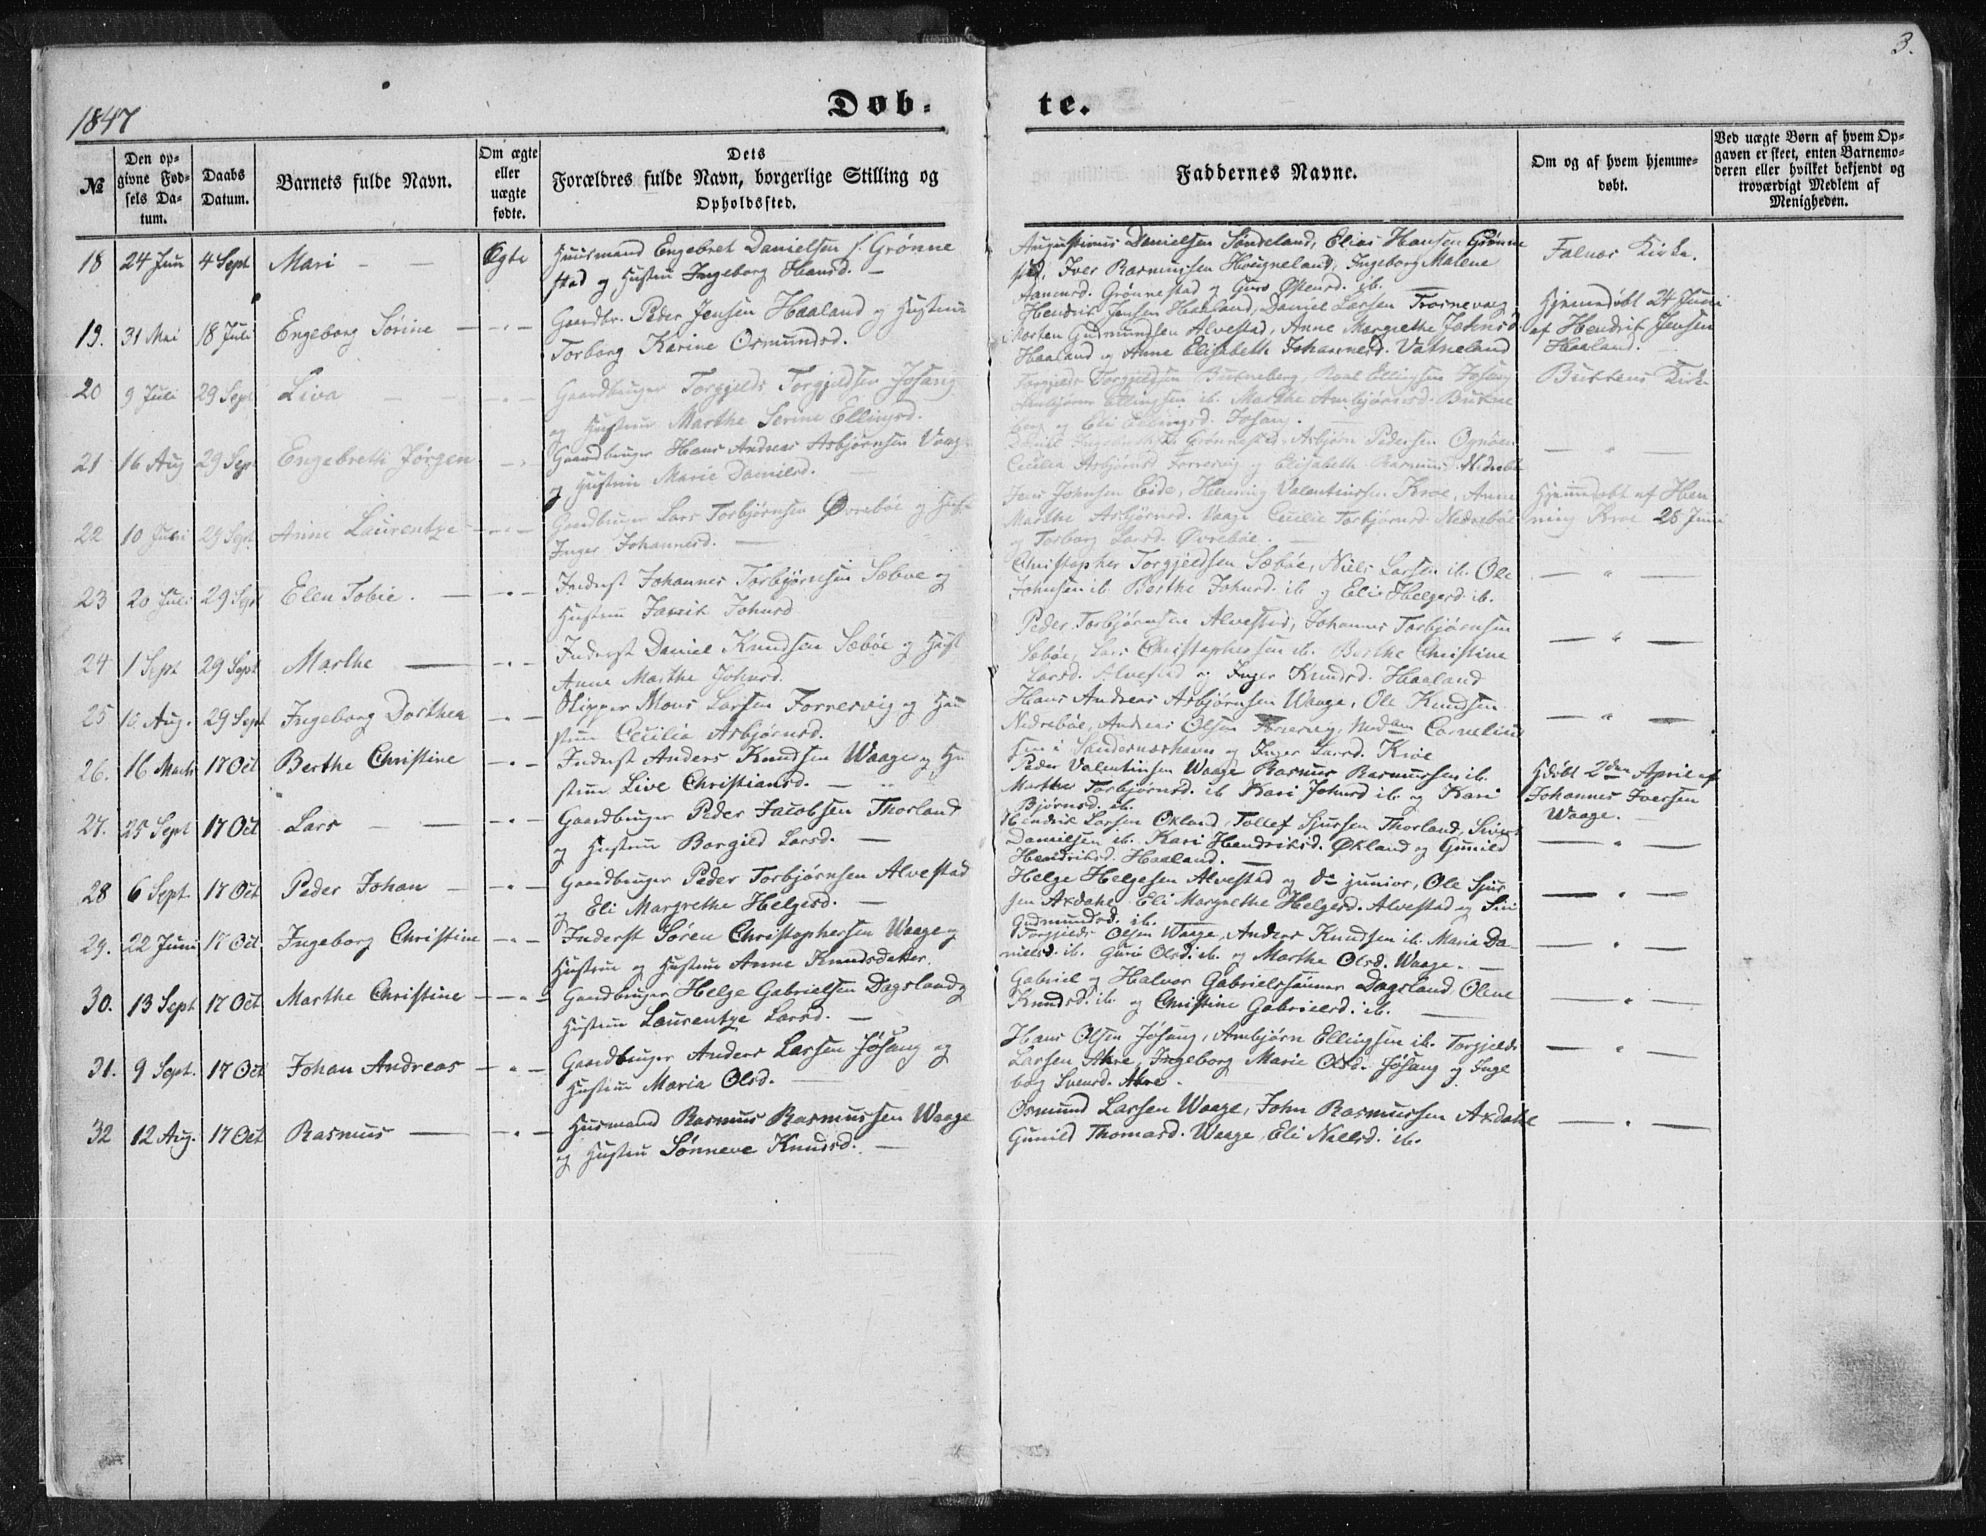 3.
1847
Døb-
te.
№
Den op-
givne Fød-
sels Da-
tum.
Daabs
Datum.
Barnets fulde Navn.
Om ægte
eller
uægte
fødte.
Dets
Forældres fulde Navn, borgerlige Stilling og
Opholdssted.
Faddernes Navne.
Om og af hvem hjemme-
døbt.
Ved uægte Børn af hvem Op-
gaven er skeet, enten Barnemo-
deren eller hvilket bekjendt og
troværdigt Medlem af
Menigheden.
18 24 Juni 4 Sept Mari — — Ægte
Huusmand Engebret Danielsen Grønne
stad og Hustru Ingeborg Hansd. —
Augustinus Danielsen Søndeland, Elias Hansen Grønne
sted, Iver Rasmussen Hougneland, Ingeborg Malene
Grønnestad og Guro ib.
Falnæs Kirke.
19. 31 Mai 18 Juli Engeborg Sørine — " —
Gaardbr. Peder Jensen Haaland og Hustrue
Torborg Karine Osmundsd.
Hendrik Jensen Haaland, Daniel Larsen
Morten Gudmundsen Alvestad, Anne Margrethe Johnsd
Haaland og Anne Elisabeth Johannesd. Vatneland
Hjemmedøbt 24 Juni
af Hendrik Jensen
Haaland. —
20 9 Juli 29 Sept Liva — — — " —
Gaardbruger Torgjelds Torgjeldsen Jøsang
og Hustrue Marthe Serine Ellingsd.
Torgjelds Torgjeldsen Ellingsen Jøsang
Ambjørn Ellingsen ib. Marthe Ambjørnsd.
og Eli Ellingsd. Jøsang. —
Kirke
21 16 Aug 29 Sept Engebreth Jørgen — " —
Gaardbruger Hans Andreas Asbjørnsen Vaag
og Hustrue Marie Danielsd. —
Grønnestad, Asbjørn Pedersen Ognøen
Cecilia Asbjørnsd Forresvig og Elisabeth Rasmusd. Nedrebø
— " —
22 10 Juni 29 Sept Anne Laurentze — " —
Gaardbruger Lars Torbjørnsen Øvrebøe og Hust
Inger Johannesd. —
Jens Johnsen Eide, Henning Valentinsen Kroe, Anne
Marthe Asbjørnsd. Vaage Cecilie Torbjørnsd. Nedrebøe
og Torborg Larsd. Øvrebøe. —
Hjemmedøbt af Hen
ning Kroe 28 Juni
23 20 Juli 29 Sept Elen Tobie. — " —
Inderst Johannes Torbjørnsen Sæboe og
Hustrue Johnsd
Christopher Torgjeldsen Sæbøe, Niels Larsen ib. Ole
Johnsen ib Berthe Johnsd. ib og Eli Helgesd. ib.
— " —
24 1 Sept 29 Sept Marthe — — " —
Inderst Daniel Knudsen Sæbøe og Hust
Anne Marthe Johnsd.
Peder Torbjørnsen Alvestad, Johannes Torbjørnsen
Sæbøe, Lars Christophersen ib. Berthe Christine
Larsd. Alvestad og Inger Knudsd. Haaland
— " —
25 10 Aug. 29 Sept Ingeborg Dorthea — " —
Skipper Mons Larsen Forresvig og Hu
strue Cecilie Asbjørnsd.
Hans Andreas Asbjørnsen Waage, Ole Knudsen
Nedrebøe, Andreas Olsen Forresvig, Madam Cornelius
sen i og Inger Larsd. Kroe
— " —
26. 16 Marts 17 Oct Berthe Christine — " —
Inderst Anders Knudsen Waage og Hu
strue Live Christiansd. —
Peder Valentinsen Waage Rasmus Rasmussen ib.
Marthe Torbjørnsd. ib Kari Johnsd ib. og Kari
Bjørnsd. ib.
Hdøbt 2den April af
Johannes Iversen
Waage. —
27. 25 Sept 17 Oct Lars — — — " —
Gaardbruger Peder Jacobsen Thorland
og Hustrue Borgild Larsd. —
Hendrik Larsen Økland, Tollef Sjursen Thorland, Sivert
Danielsen ib. Kari Hendriksd. Økland og Gunild
Hendriksd. Haaland. —
— " —
28 6 Sept. 17 Oct Peder Johan — — " —
Gaardbruger Peder Torbjørnsen Alvestad
og Eli Margrethe Helgesd. —
Helge Helgesen Alvestad og do junior, Ole Sjur
sen Axdahl. Eli Margrethe Helgesd. Alvestad og Siri
Gudmundsd. ib.
— " —
29. 22 Juni 17 Oct. Ingeborg Christine — " —
Inderst Søren Christophersen Waage og
Hustrue og Hustrue Anne Knudsdatter.
Torgjelds Olsen Waage, Anders Knudsen ib. Maria Da-
nielsd. ib. Guri Olsd. ib. og Marthe Olsd. Waage. —
— " —
30. 13 Sept 17 Oct Marthe Christine — " —
Gaardbruger Helge Gabrielsen Dagsland og
Hustrue Laurentze Larsd. —
Gabriel og Halvor Gabrielssønner Dagsland, Olene
Knudsd. ib. og Christine Gabrielsd. ib. —
— " —
31. 9 Sept. 17 Oct Johan Andreas — " —
Gaardbruger Anders Larsen Jøsang og
Hustrue Maria Olsd. —
Hans Olsen Jøsang, Ambjørn Ellingsen ib. Torgjelds
Larsen Ahre, Ingeborg Marie Olsd. Jøsang og Inge
borg Svensd. Ahre.
— " —
32 12 Aug. 17 Oct Rasmus — — " —
Huusmand Rasmus Rasmussen Waage
og Hustru Sønneve Knudsd. —
Osmund Larsen Waage, John Rasmussen Axdahl
Gunild Thomasd. Waage, Eli Nielsd. ib.
— " —